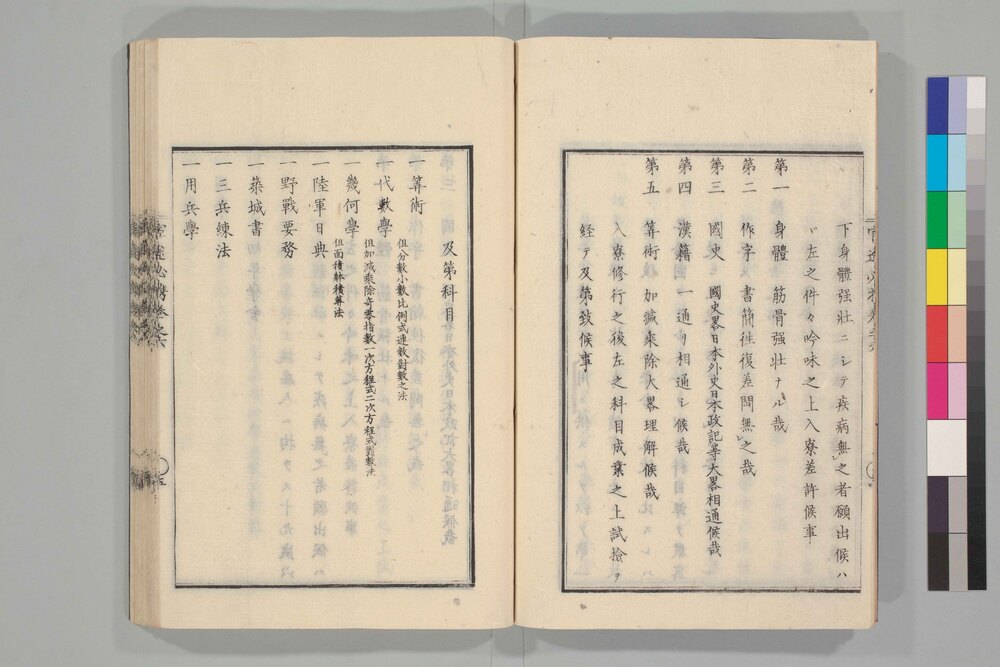 下身體强壯ニシテ疾病無之者願出候ハ
ヾ左之件々吟味之上入寮差許候事
第一 身體 筋骨强壯ナル哉
第二 作字文書簡徃復差閊無之哉
第三 國史 國史畧日本外史日本政記等大畧相通候哉
第四 漢籍 一通リ相通シ候哉
第五 算術 加減乘除大畧理解候哉
入寮修行之後左之科目成業之上試撿ヲ
経テ及第致候事
及第科目
一算術 但分數小數比例式連數對數之法
一代數學 但加減乘除竒零指數一次方程式二次方程式對數法
一幾何學 但面積躰積算法
一陸軍日典
一野戰要務
一築城書
一三兵練法
一用兵學